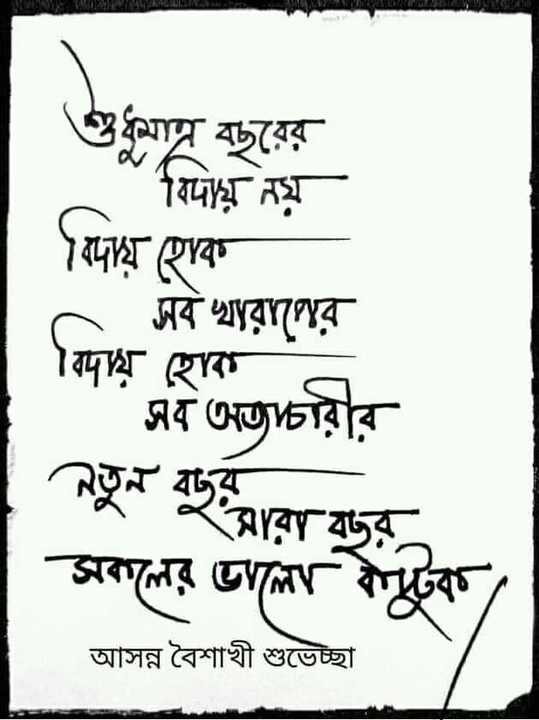 শুধুমাত্র বছরের
বিদায় নয়
বিদায় হোক
সব খারাপের
বিদায় হোক
সব অত্যাচারীর
নতুন বছর
সারা বছর
সকলের ভালো কাটুক
আসন্ন বৈশাখী শুভেচ্ছা